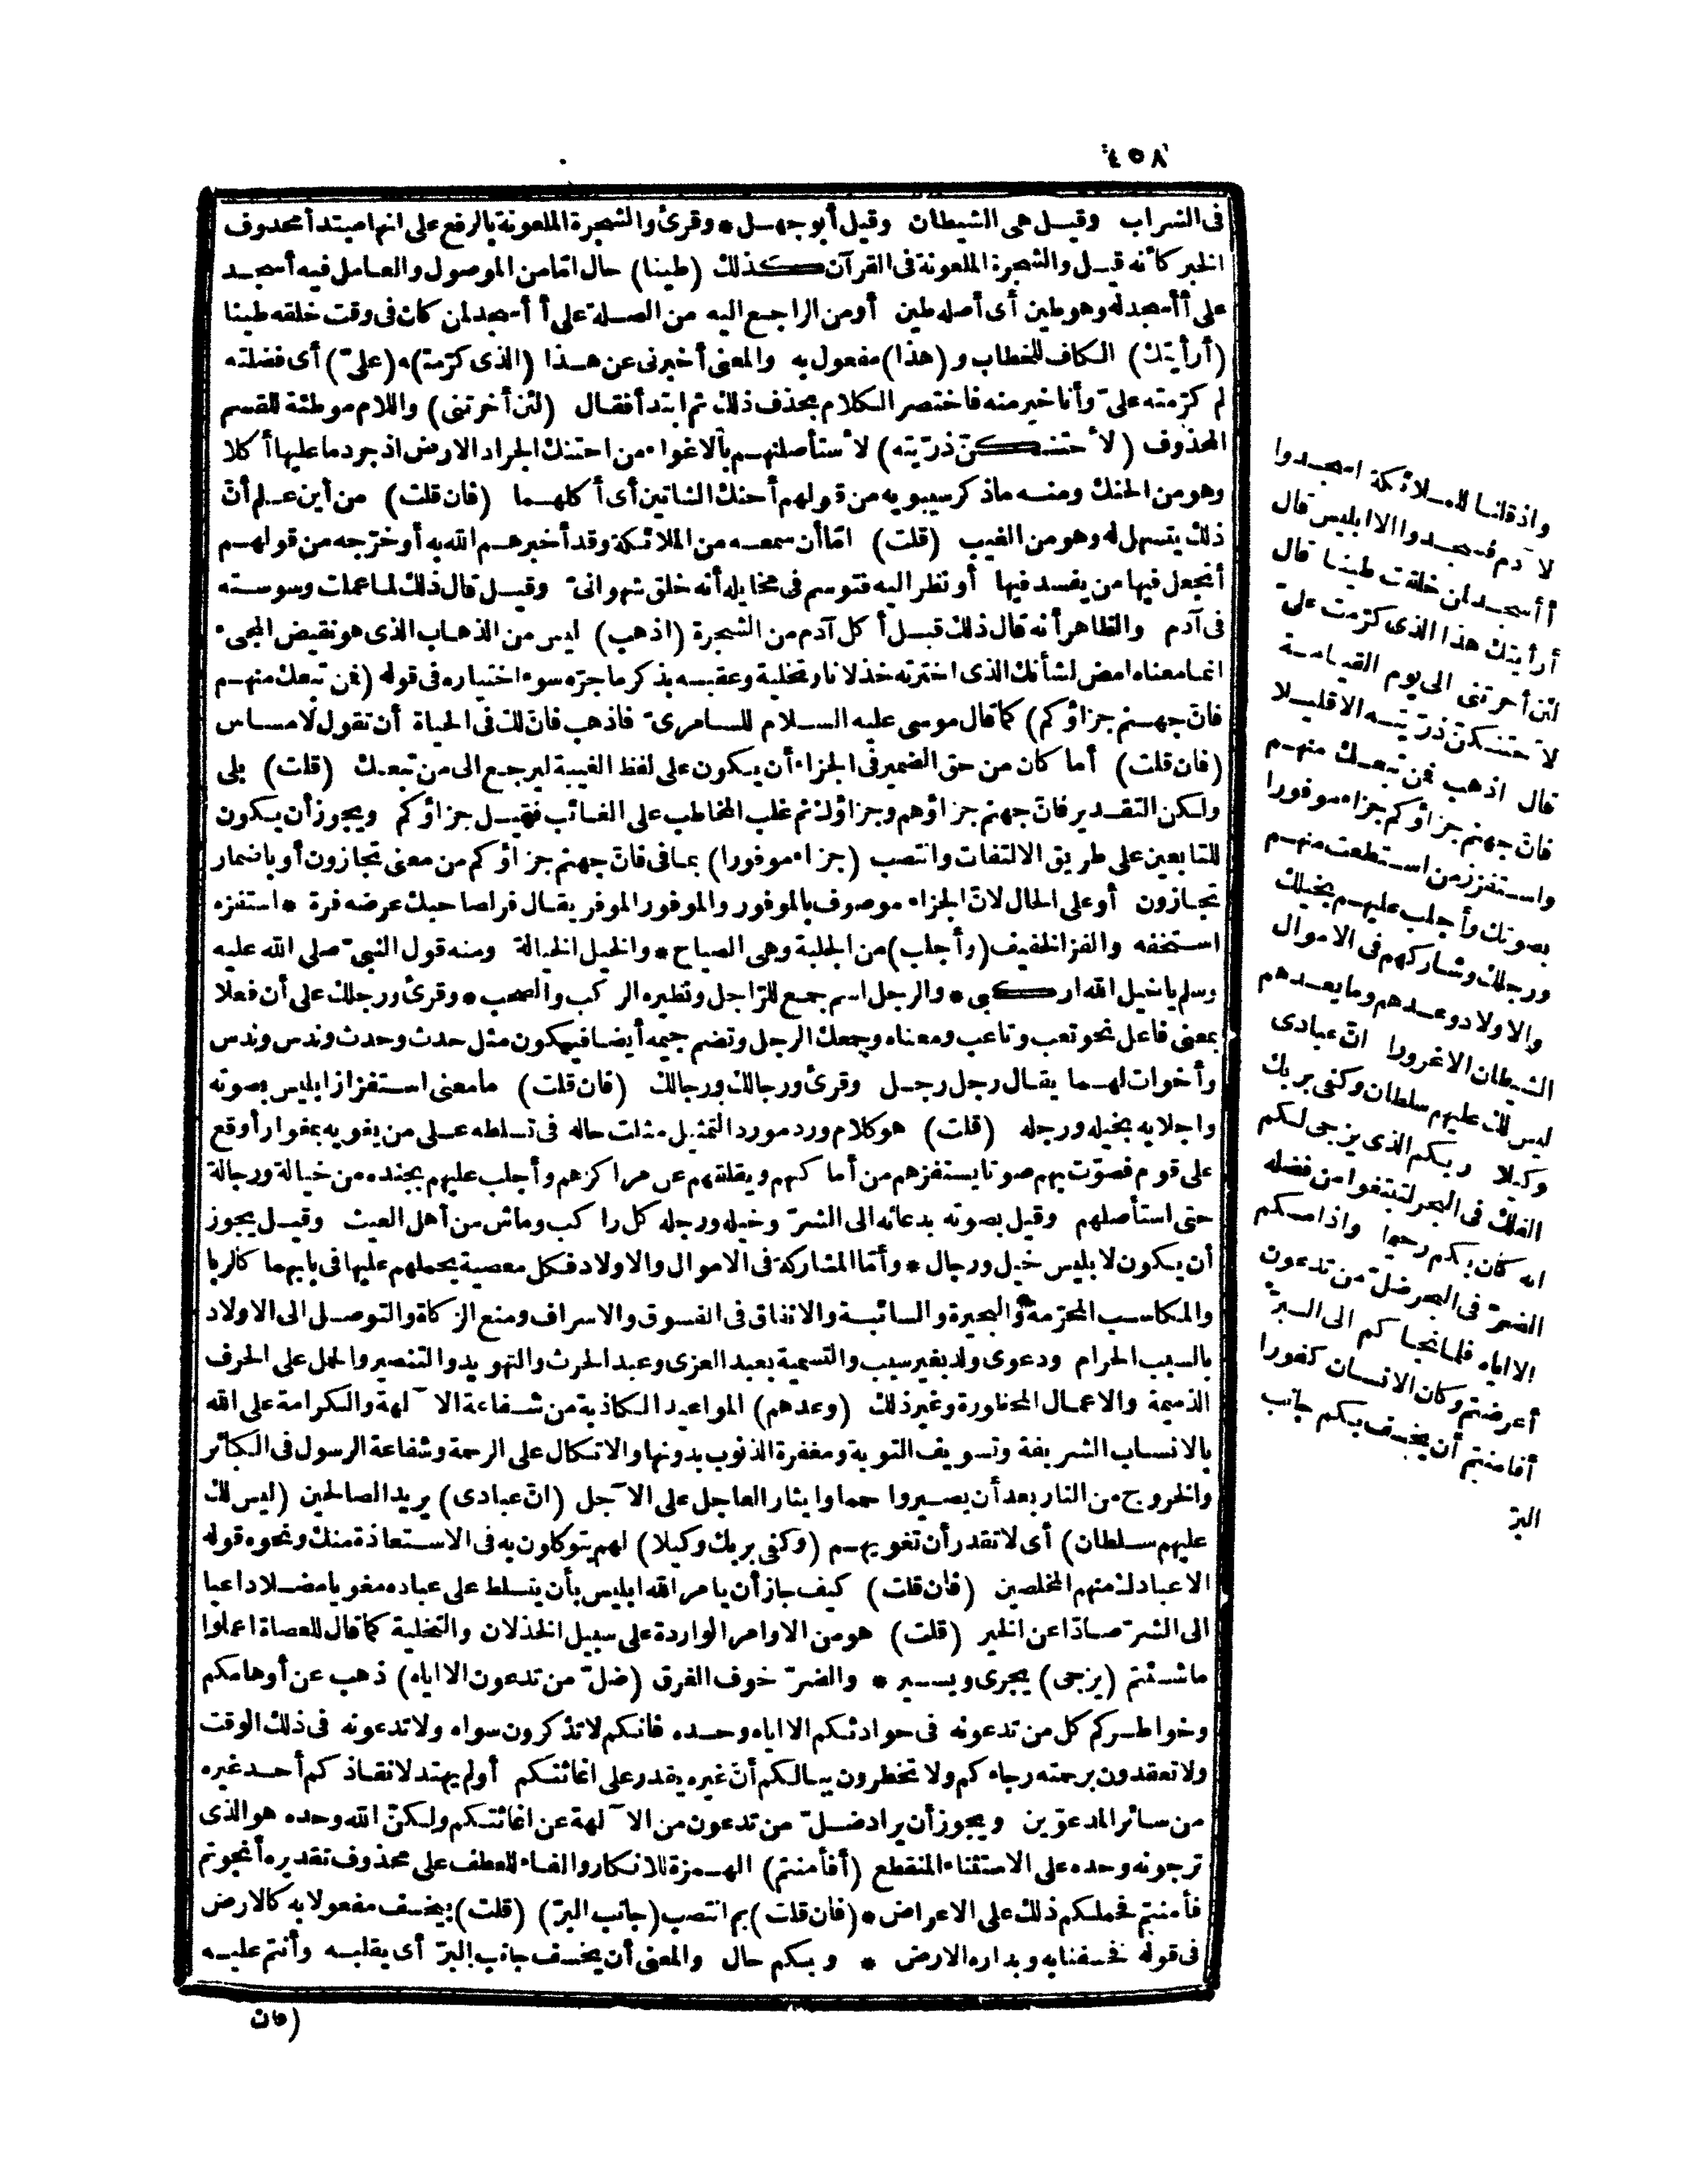 ٤٥٨
فى الشراب وقيل هى الشيطان وقيل أبو جهل * وقرئ والشجرة الملعونة بالرفع على انها مبتدأ محذوف
الخبر كأنه قيل والشجرة الملعونة فى القرآن كذلك (طينا) حال امّا من الموصول والعامل فيه أسجد
على أأسجد له وهو طين أى أصله طين أو من الراجع اليه من الصلة على أأسجد لمن كان فى وقت خلقه طينا
(أرأيتك) الكاف للخطاب و(هذا) مفعول به والمعنى أخبرنى عن هذا (الذى كرّمتـ)ـه (علىّ) أى فضلته
لم كرّمته علىّ وأنا خير منه فاختصر الكلام بحذف ذلك ثم ابتدأ فقال (لئن أخرتنى) واللام موطئة للقسم
المحذوف (لأحتنكنّ ذرّيته) لأستأصلنهم بالاغواء من احتنك الجراد الارض اذ جرد ما عليها أكلا
وهو من الحنك ومنه ما ذكر سيبويه من قولهم أحنك الشاتين أى أكلهما (فان قلت) من أين علم أنّ
ذلك يتسهل له وهو من الغيب (قلت) امّا أن سمعه من الملائكة وقد أخبرهم الله به أو خرّجه من قولهم
أتجعل فيها من يفسد فيها أو نظر اليه فتوسم فى مخايله أنه خلق شهوانىّ وقيل قال ذلك لما عملت وسوسته
فى آدم والظاهر أنه قال ذلك قبل أكل آدم من الشجرة (اذهب) ليس من الذهاب الذى هو نقيض المجىء
انما معناه امض لشأنك الذى اخترته خذلانا وتخلية وعقبه بذكر ما جرّه سوء اختياره فى قوله (فمن تبعك منهم
فانّ جهنم جزاؤكم) كما قال موسى عليه السلام للسامرىّ فاذهب فانّ لك فى الحياة أن تقول لا مساس
(فان قلت) أما كان من حق الضمير فى الجزاء أن يكون على لفظ الغيبة ليرجع الى من تبعك (قلت) بلى
ولكن التقدير فانّ جهنم جزاؤهم وجزاؤك ثم غلب المخاطب على الغائب فقيل جزاؤكم ويجوز أن يكون
للتابعين على طريق الالتفات وانتصب (جزاء موفورا) بما فى فانّ جهنم جزاؤكم من معنى تجازون أو باضمار
تجازون أو على الحال لانّ الجزاء موصوف بالموفور والموفور الموفر يقال فر لصاحبك عرضه فرة * استفزه
استخفه والفز الخفيف (وأجلب) من الجلبة وهى الصياح * والخيل الخيالة ومنه قول النبىّ صلى الله عليه
وسلم يا خيل الله اركبى * والرجل اسم جمع للرّاجل ونظيره الركب والصحب * وقرئ ورجلك على أن فعلا
بمعنى فاعل نحو تعب وتاعب ومعناه وجمعك الرجل وتضم جيمه أيضا فيكون مثل حدث وحدث وندس وندس
وأخوات لهما يقال رجل رجل وقرئ ورجالك ورجالك (فان قلت) ما معنى استفزاز ابليس بصوته
واجلابه بخيله ورجله (قلت) هو كلام ورد مورد التمثيل مثلت حاله فى تسلطه على من يغويه بمغوار أوقع
على قوم فصوّت بهم صوتا يستفزهم من أماكنهم ويقلقهم عن مراكزهم وأجلب عليهم بجنده من خيالة ورجالة
حتى استأصلهم وقيل بصوته بدعائه الى الشرّ وخيله ورجله كل راكب وماش من أهل العيث وقيل يجوز
أن يكون لابليس خيل ورجال * وأمّا المشاركة فى الاموال والاولاد فكل معصية يحملهم عليها فى بابهما كالربا
والمكاسب المحرّمة والبحيرة والسائبة والانفاق فى الفسوق والاسراف ومنع الزكاة والتوصل الى الاولاد
بالسبب الحرام ودعوى ولد بغير سبب والتسمية بعبد العزى وعبد الحرث والتهويد والتنصير والحمل على الحرف
الذميمة والاعمال المحظورة وغير ذلك (وعدهم) المواعيد الكاذبة من شفاعة الآلهة والكرامة على الله
بالانساب الشريفة وتسويف التوبة ومغفرة الذنوب بدونها والاتكال على الرحمة وشفاعة الرسول فى الكبائر
والخروج من النار بعد أن يصيروا حمما وايثار العاجل على الآجل (انّ عبادى) يريد الصالحين (ليس لك
عليهم سلطان) أى لا تقدر أن تغويهم (وكفى بربك وكيلا) لهم يتوكلون به فى الاستعاذة منك ونحوه قوله
الا عبادك منهم المخلصين (فان قلت) كيف جاز أن يأمر الله ابليس بأن يتسلط على عباده مغويا مضلا داعيا
الى الشرّ صادّا عن الخير (قلت) هو من الاوامر الواردة على سبيل الخذلان والتخلية كما قال للعصاة اعملوا
ما شئتم (يزجى) يجرى ويسير * والضرّ خوف الغرق (ضلّ من تدعون الا اياه) ذهب عن أوهامكم
وخواطركم كل من تدعونه فى حوادثكم الا اياه وحده فانكم لا تذكرون سواه ولا تدعونه فى ذلك الوقت
ولا تعقدون برحمته رجاءكم ولا تخطرون ببالكم أنّ غيره يقدر على اغاثتكم أولم يهتد لانقاذكم أحد غيره
من سائر المدعوّين ويجوز أن يراد ضلّ من تدعون من الآلهة عن اغاثتكم ولكنّ الله وحده هو الذى
ترجونه وحده على الاستثناء المنقطع (أفأمنتم) الهمزة للانكار والفاء للعطف على محذوف تقديره أنجوتم
فأمنتم فحملكم ذلك على الاعراض * (فان قلت) بم انتصب (جانب البرّ) (قلت) بيخسف مفعولا به كالارض
فى قوله فخسفنا به وبداره الارض * وبكم حال والمعنى أن يخسف جانب البرّ أى يقلبه وأنتم عليه
(فان
واذ قلنا للملائكة اسجدوا
لآدم فسجدوا الا ابليس قال
أأسجد لمن خلقت طينا قال
أرأيتك هذا الذى كرّمت علىّ
لئن أخرتنى الى يوم القيامة
لأحتنكنّ ذرّيته الا قليلا
قال اذهب فمن تبعك منهم
فانّ جهنم جزاؤكم جزاء موفورا
واستفزز من استطعت منهم
بصوتك وأجلب عليهم بخيلك
ورجلك وشاركهم فى الاموال
والاولاد وعدهم وما يعدهم
الشيطان الا غرورا انّ عبادى
ليس لك عليهم سلطان وكفى بربك
وكيلا ربكم الذى يزجى لكم
الفلك فى البحر لتبتغوا من فضله
انه كان بكم رحيما واذا مسكم
الضرّ فى البحر ضلّ من تدعون
الا اياه فلما نجاكم الى البرّ
أعرضتم وكان الانسان كفورا
أفأمنتم أن يخسف بكم جانب
البرّ